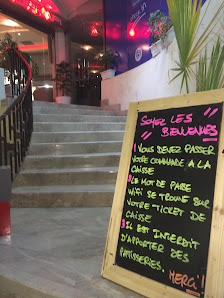 SOYEZ LES
BIENVENUES
1 VOUS DEVEZ PASSER
VOTRE COMMANDE A LA
CAISSE
2 LE MOT DE PASSE
WIFI SE TROUVE SUR
VOTRE TICKET DE
CAISSE
3 IL EST INTERDIT
D'APPORTER DES
PATISSERIES.
MERCI!